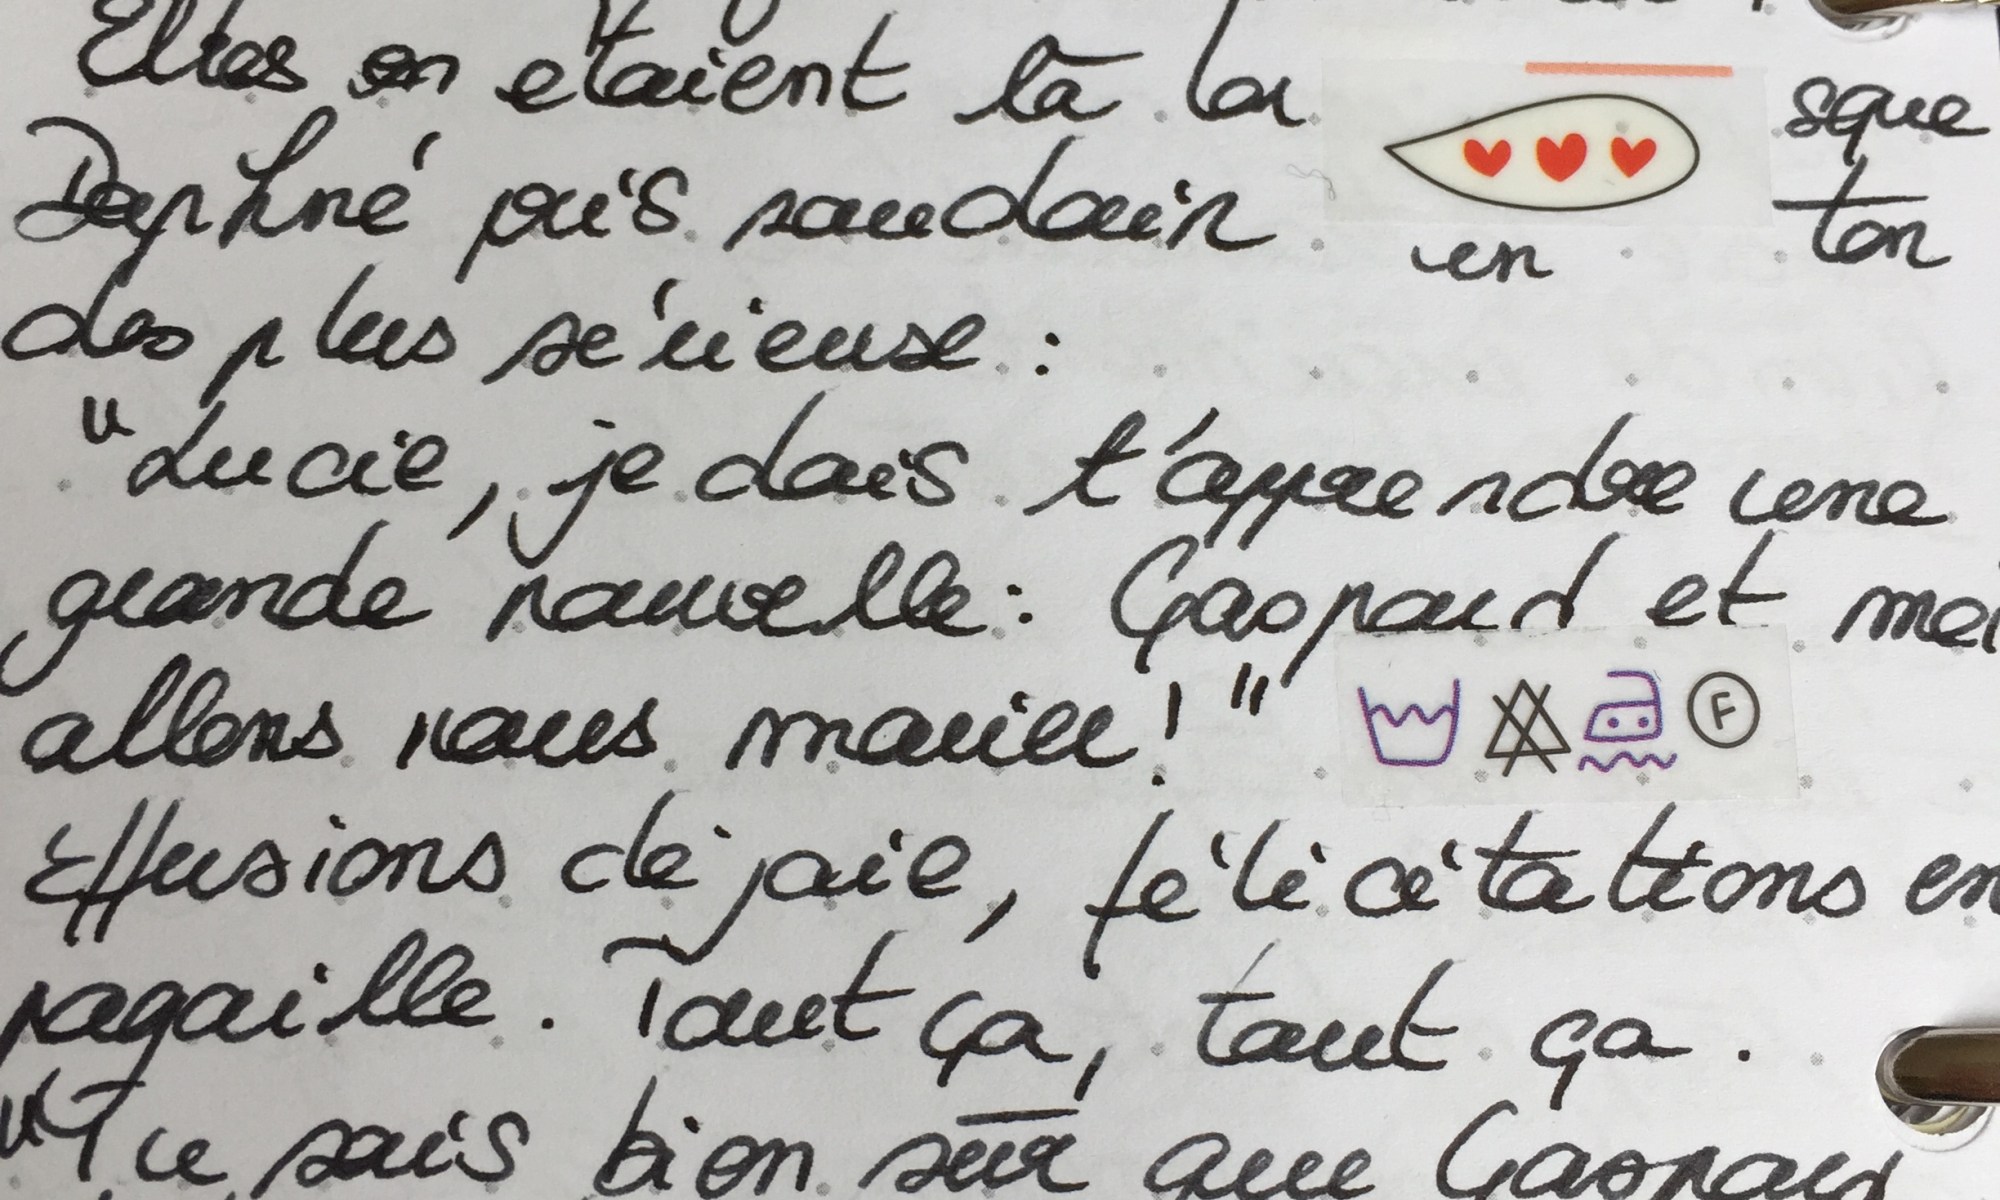 Elles en étaient là lor sque
Daphné pris soudain en ton
des plus sérieuse :
"Lucie, je dois t'apprendre une
grande nouvelle : Gaspard et moi
allons nous marier ! "
F
Effusions de joie, félicitations en
pagaille. Tout ça, tout ça .
"Tu sais bien sûr que Gaspard